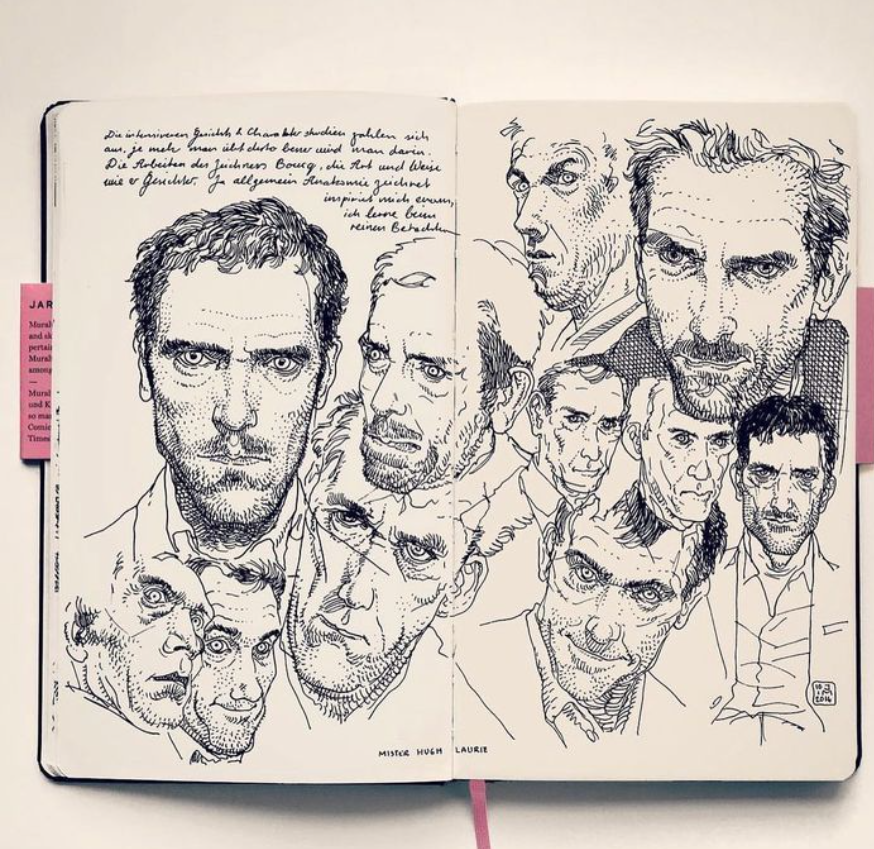 Die intensiveren Gesichts & Charakter studien zahlen sich
aus, je mehr man übt desto besser wird man darin.
Die Arbeiten des Zeichners Boucq, die Art und Weise
wie er Gesichter, Ja allgemein Anatomie zeichnet
inspiriert mich enorm,
ich lerne beim
reinen Betrachten
JAR
Mural
and sk
perta
Mural
among
—
Mural
und K
so ma
Comic
Times
MISTER HUGH LAURIE
2014